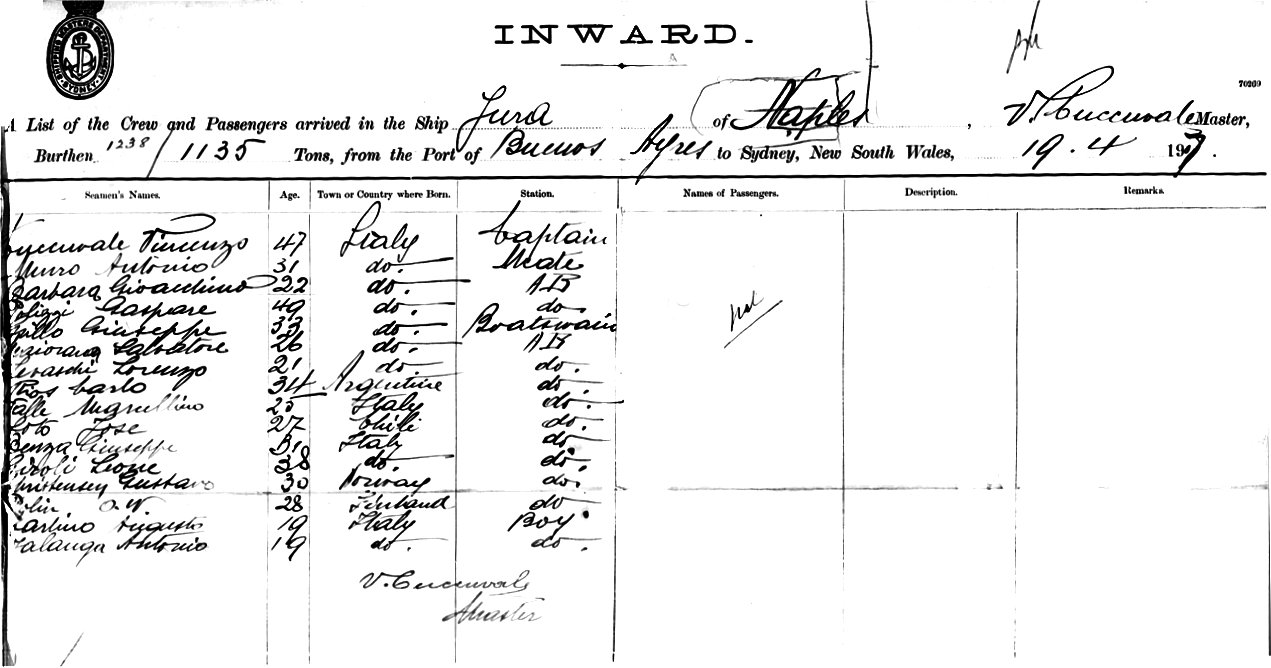 SHIPPING MASTERS DEPARTMENT SYDNEY
INWARD.
70269
A List of the Crew and Passengers arrived in the Ship Jura of Naples, V. Cuccuvale Master,
Burthen 1238/1135 Tons, from the Port of Buenos Ayres to Sydney, New South Wales, 19.4 1907.
Seamen's Names. Age. Town or Country where Born. Station. Names of Passengers. Description. Remarks.
Cuccuvale Vincenzo 47 Italy Captain
Munro Antonio 31 do. Mate
Barbara Gioacchino 22 do. AB
Gaspare 49 do. do
Giuseppe 33 do. Boatswain
Salvatore 26 do. AB
Lorenzo 21 do. do.
Rios Carlo 34 Argentine do.
25 Italy do.
Soto Jose 27 Chili do.
Giuseppe Italy do
Leone 38 do. do.
Christensen Gustavo 30 Norway do.
28 Finland do
Augusto 19 Italy Boy
Antonio 19 do. do.
V. Cuccuvale
Master